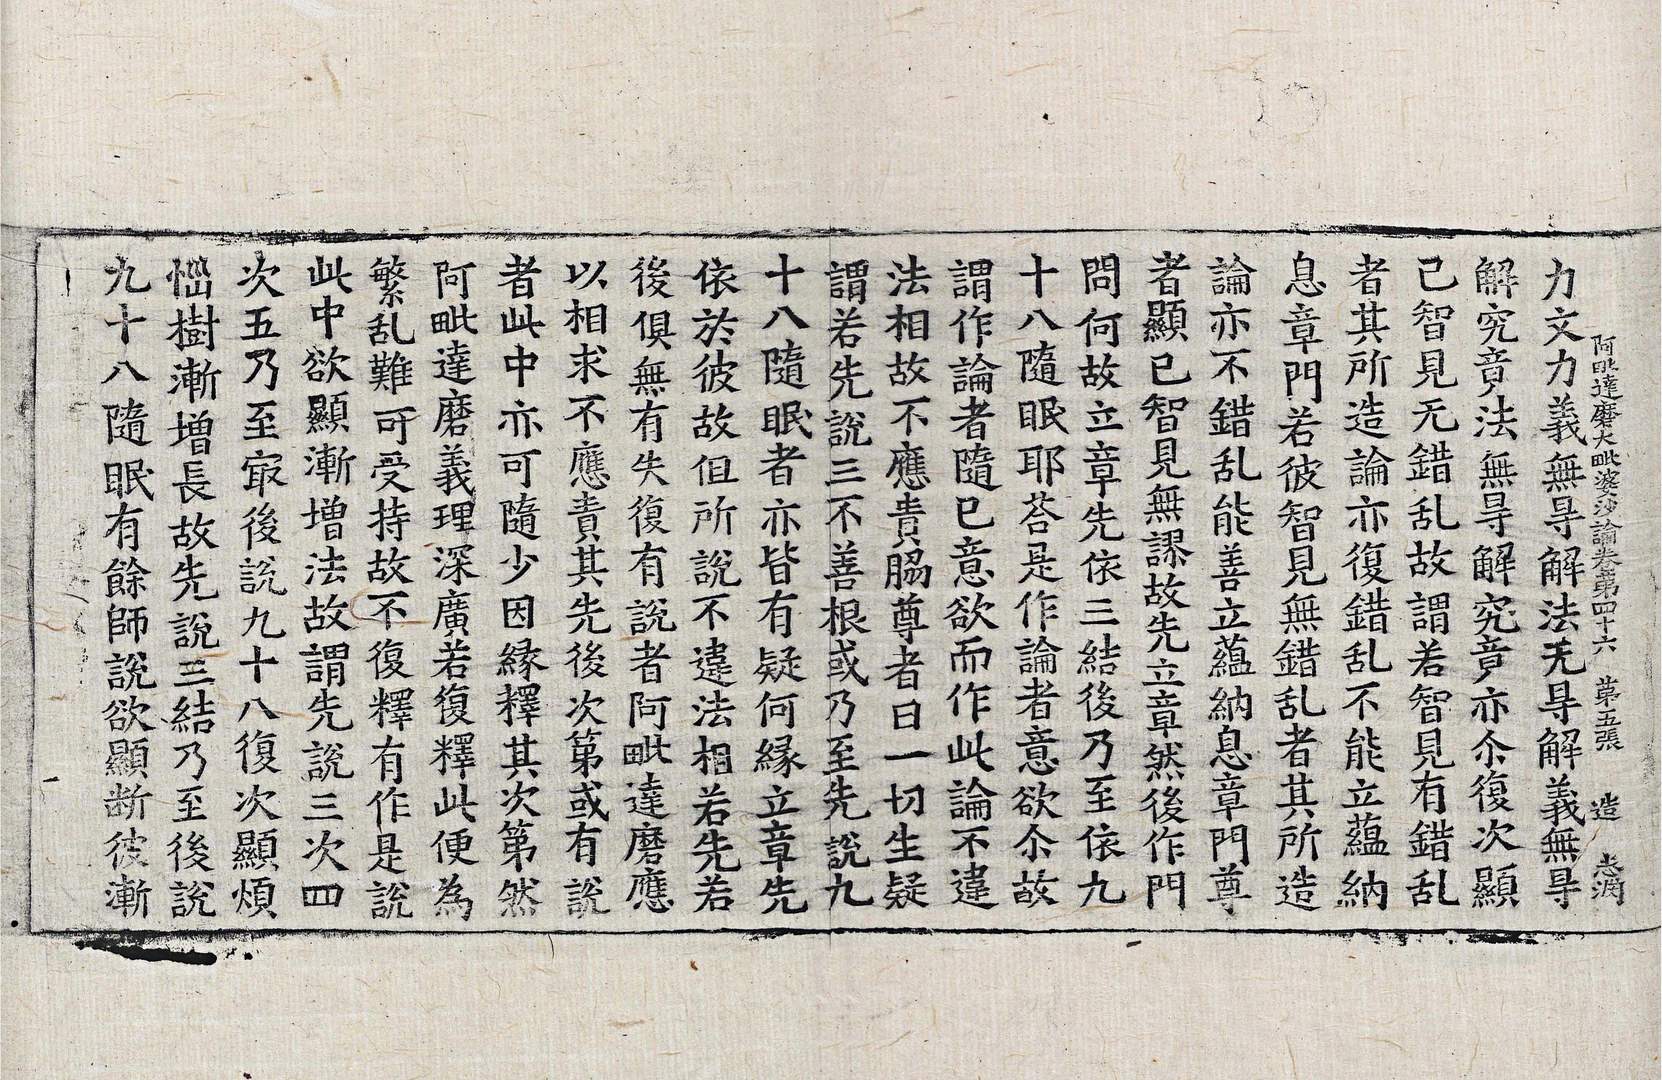 阿毗達磨大毗婆沙論卷第四十六 第五張 造
力文力義無㝵解法无㝵解義無㝵
解究竟法無㝵解究竟亦尒復次顯
已智見无錯乱故謂若智見有錯乱
者其所造論亦復錯乱不能立蘊納
息章門若彼智見無錯乱者其所造
論亦不錯乱能善立蘊納息章門尊
者顯已智見無謬故先立章然後作門
問何故立章先依三結後乃至依九
十八隨眠耶荅是作論者意欲尒故
謂作論者隨已意欲而作此論不違
法相故不應責脇尊者曰一切生疑
謂若先說三不善根或乃至先說九
十八隨眠者亦皆有疑何緣立章先
依於彼故但所說不違法相若先若
後俱無有失復有說者阿毗達磨應
以相求不應責其先後次第或有說
者此中亦可隨少因緣釋其次第然
阿毗達磨義理深廣若復釋此便為
繁乱難可受持故不復釋有作是說
此中欲顯漸增法故謂先說三次四
次五乃至冣後說九十八復次顯煩
惱樹漸增長故先說三結乃至後說
九十八隨眠有餘師說欲顯断彼漸